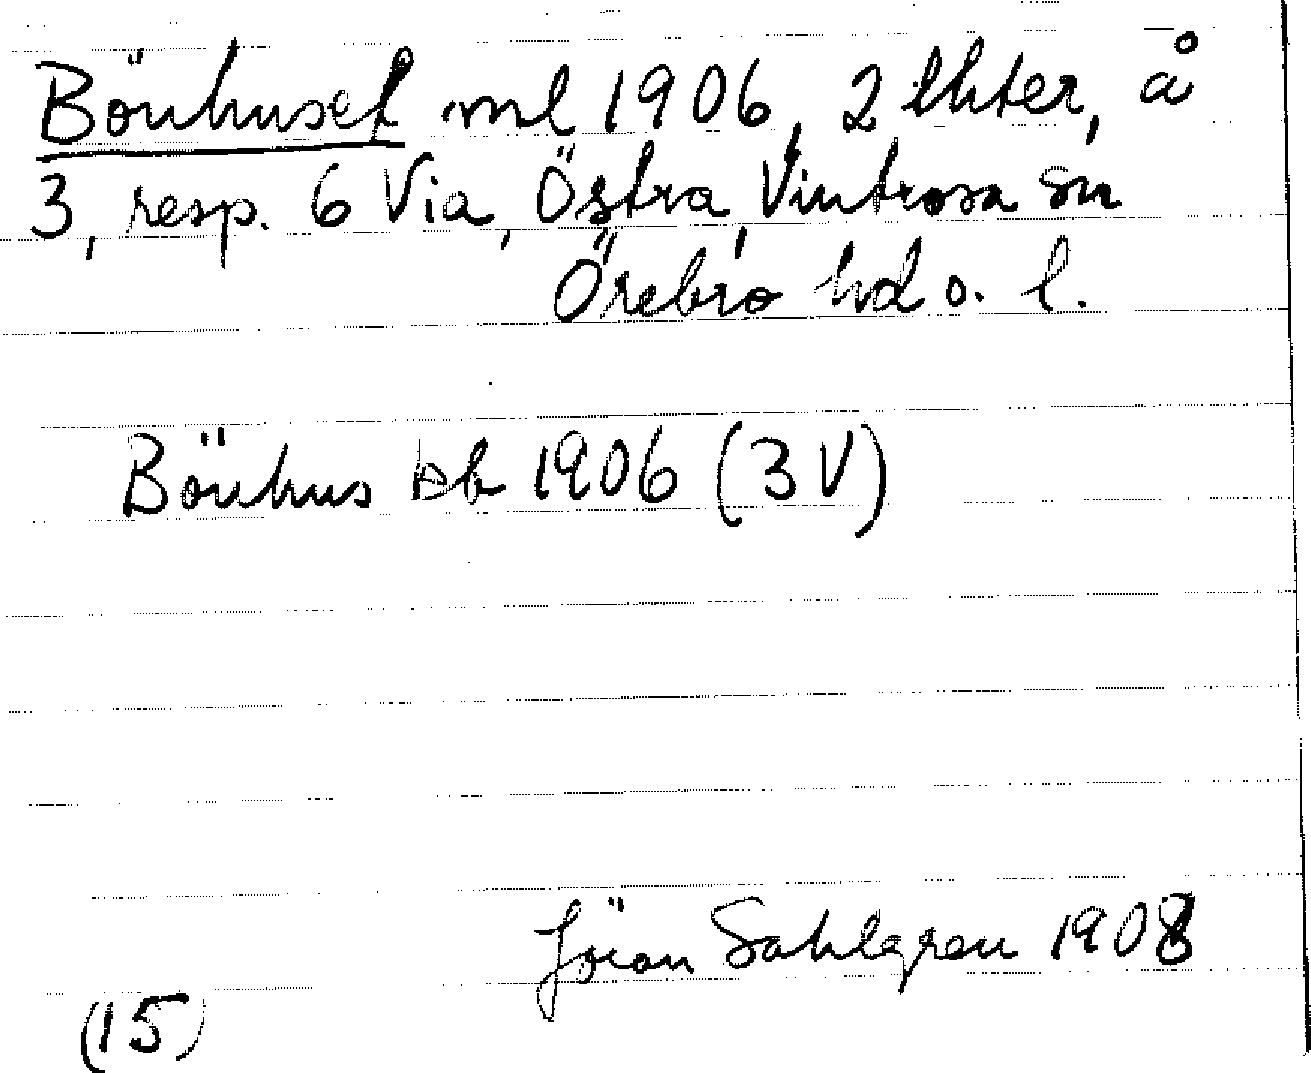 Bönhuset ml 1906, 2 lhter, å
3, resp. 6 Via, Östra Vintrosa sn
Örebro hd o. l.
Bönhus Eb 1906 (3 V)
Jöran Sahlgren 1908
(15)